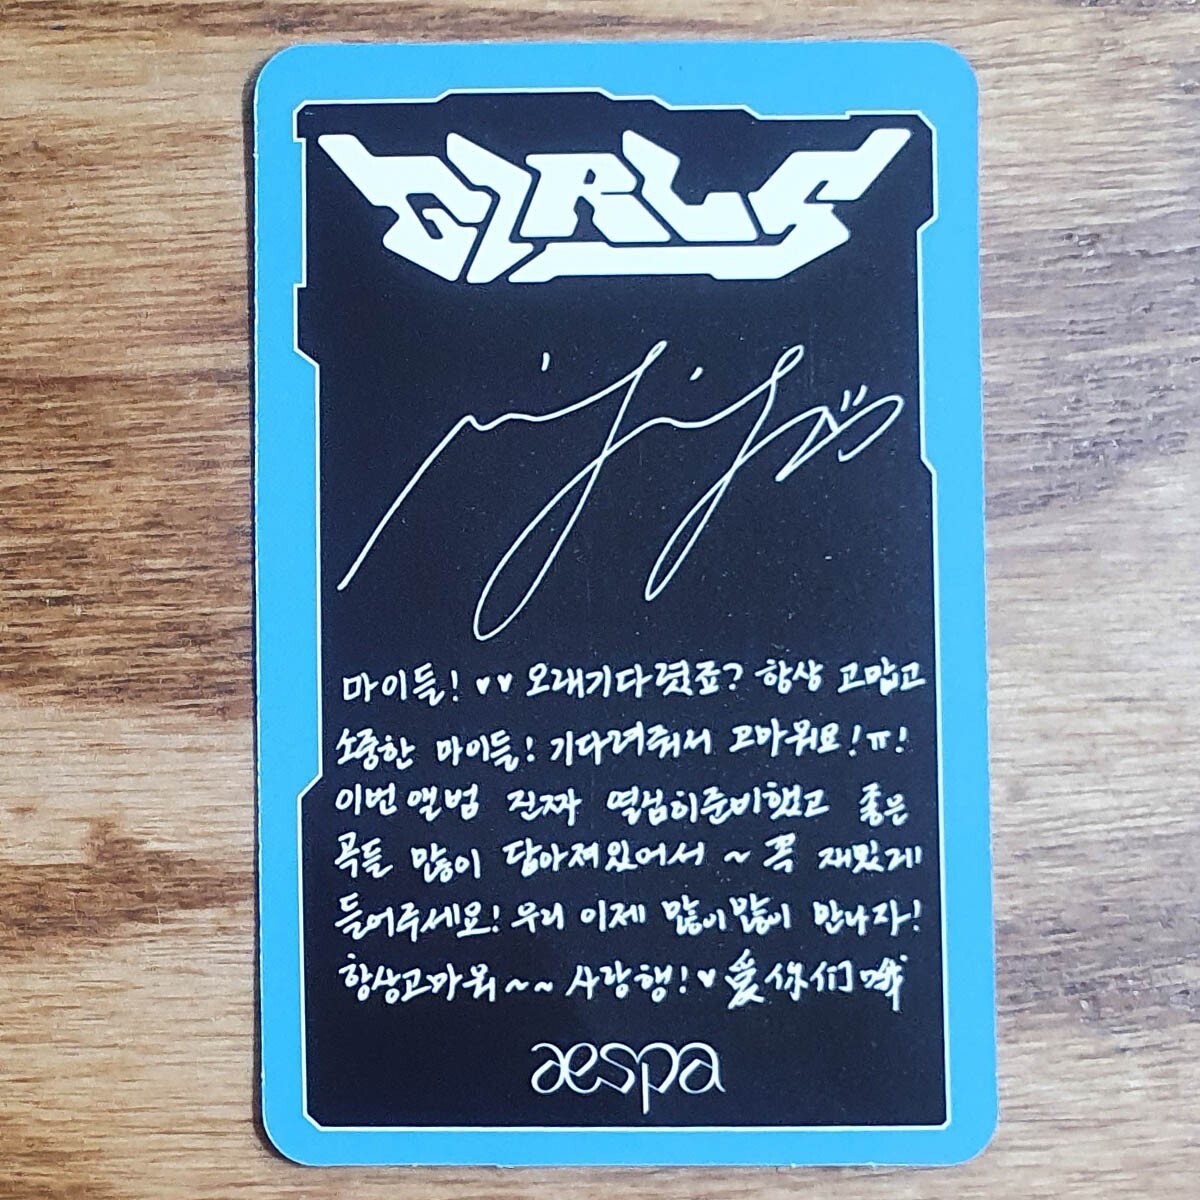 GIRLS
마이들! ♥♥ 오래기다렸죠? 항상 고맙고
소중한 마이들! 기다려줘서 고마워요!ㅠ!
이번 앨범 진짜 열심히준비했고 좋은
곡들 많이 담아져있어서 ~ 꼭 재밌게
들어주세요! 우리 이제 많이많이 만나자!
항상고마워~~ 사랑행!♥愛你们哦
aespa